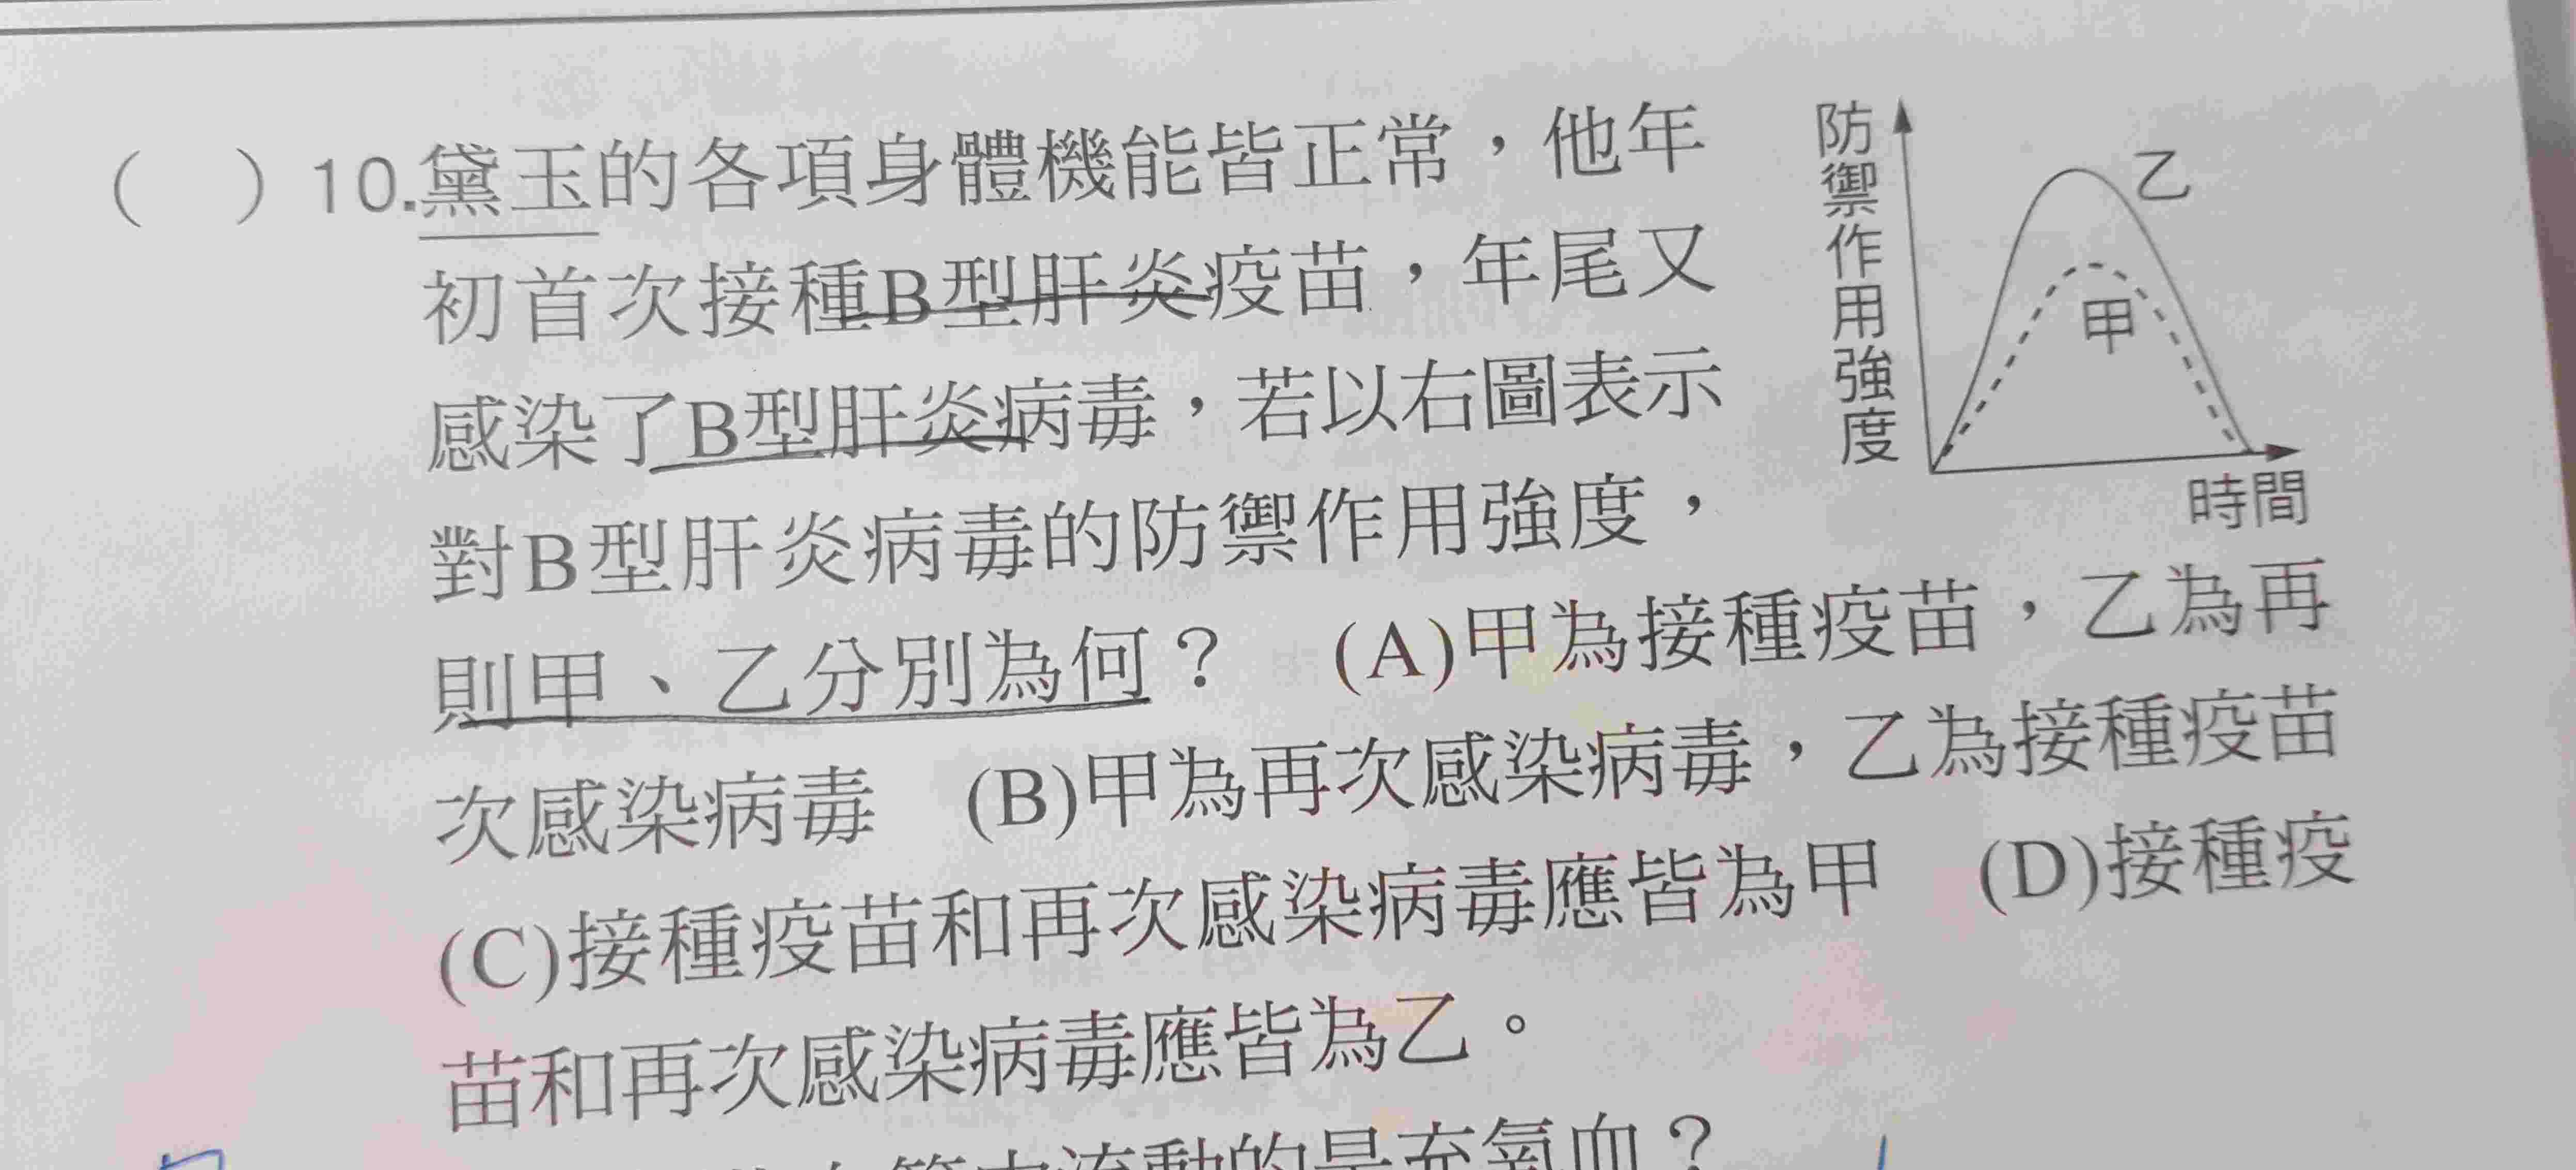 (　) 10.黛玉的各項身體機能皆正常，他年
初首次接種B型肝炎疫苗，年尾又
感染了B型肝炎病毒，若以右圖表示
對B型肝炎病毒的防禦作用強度，
則甲、乙分別為何？　(A)甲為接種疫苗，乙為再
次感染病毒　(B)甲為再次感染病毒，乙為接種疫苗
(C)接種疫苗和再次感染病毒應皆為甲　(D)接種疫
苗和再次感染病毒應皆為乙。
防禦作用強度
乙
甲
時間
流動的是充氧血？